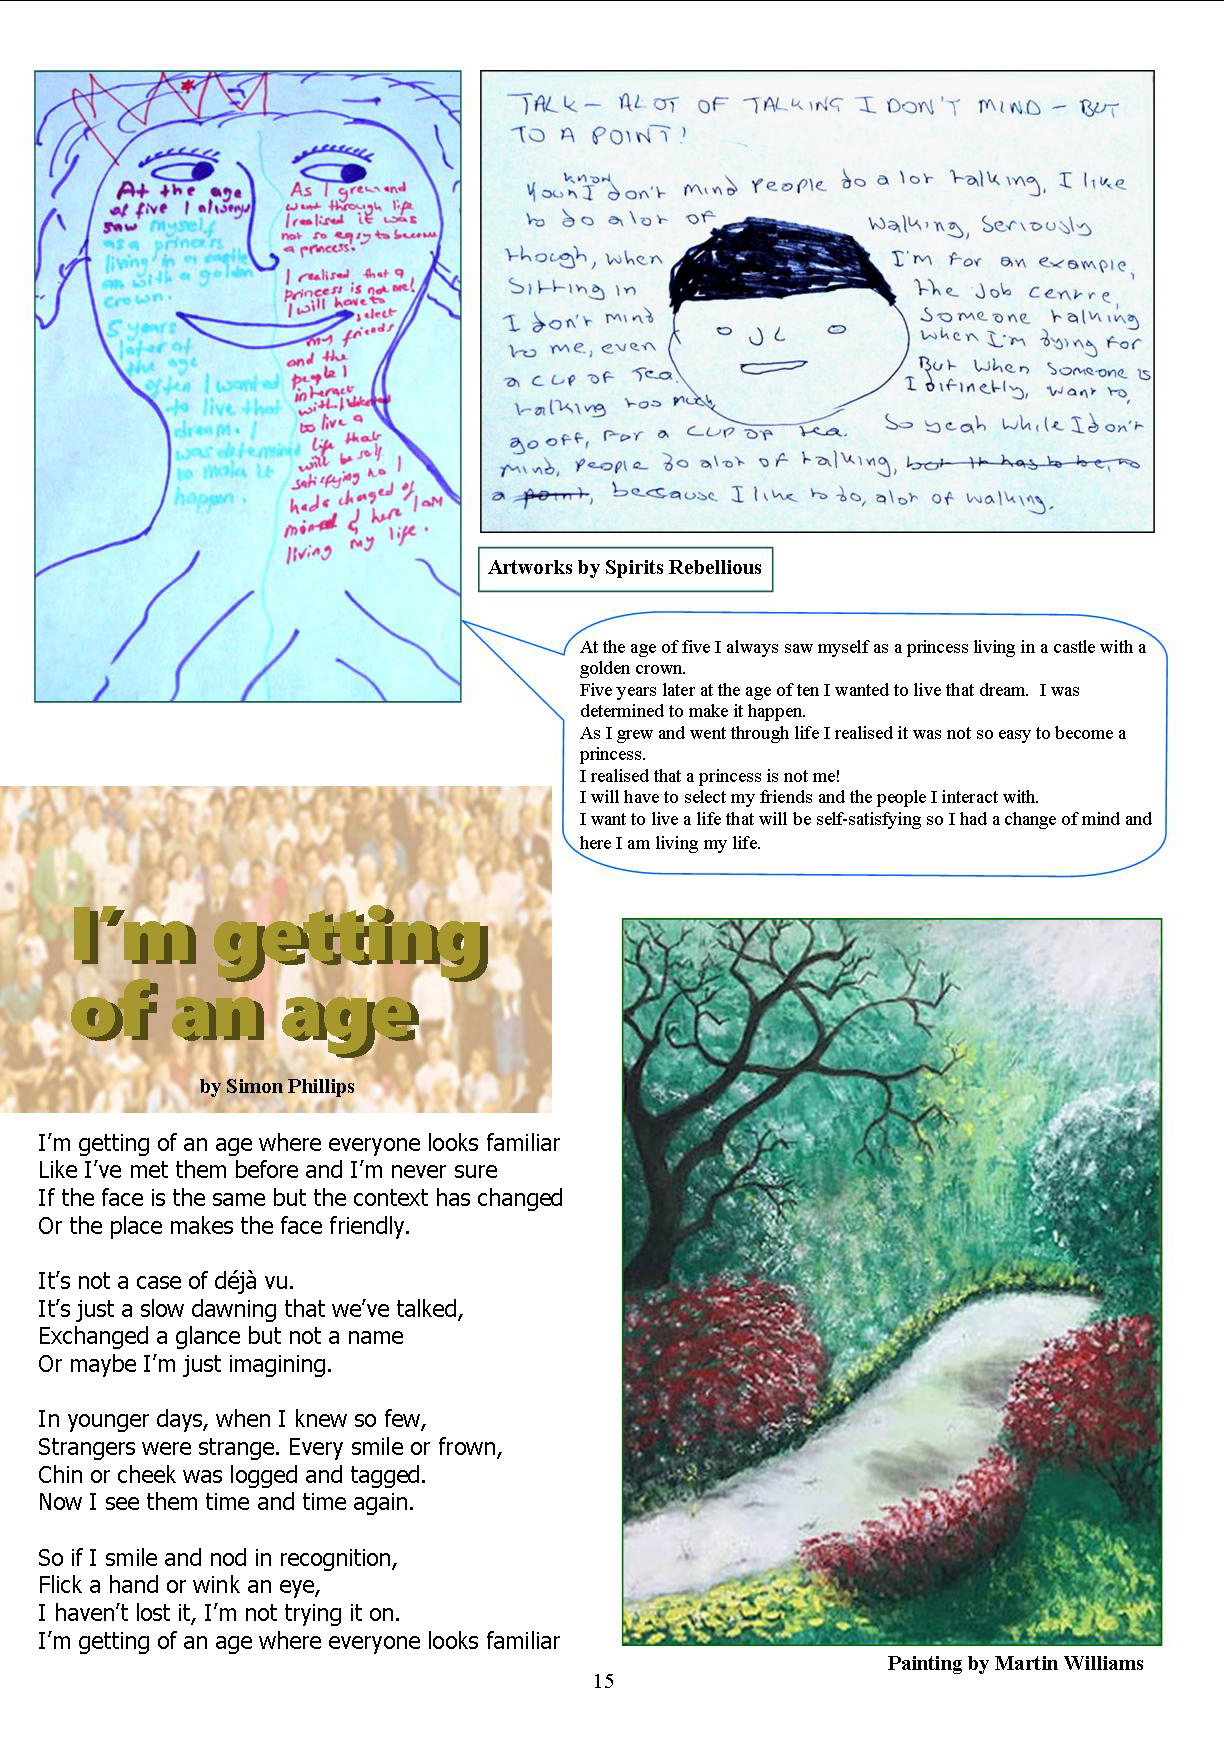 At the age
of five I always
saw myself
as a princess
living in a castle
an with a golden
crown.
5 years
later at
the age
often I wanted
to live that
dream. I
was determined
to make it
happen.
As I grew and
went through life
I realised it was
not so easy to become
a princess.
I realised that a
princess is not me!
I will have to
select
my friends
and the
people I
interact
with. I
to live a
life that
will be self
satisfying so I
had a changed of
here I am
living my life.
TALK – ALOT OF TALKING I DON'T MIND – BUT
TO A POINT!
You know I don't mind people do a lot talking, I like
to do alot of walking, seriously
though, when I'm for an example,
sitting in the Job centre,
I don't mind someone talking
to me, even when I'm dying for
a cup of tea. But when someone is
talking too much I difinetly, want to,
go off, for a cup of tea. So yeah while I don't
mind, people do alot of talking, but it has to be, to
a point, because I like to do, alot of walking.
Artworks by Spirits Rebellious
At the age of five I always saw myself as a princess living in a castle with a
golden crown.
Five years later at the age of ten I wanted to live that dream.  I was
determined to make it happen.
As I grew and went through life I realised it was not so easy to become a
princess.
I realised that a princess is not me!
I will have to select my friends and the people I interact with.
I want to live a life that will be self-satisfying so I had a change of mind and
here I am living my life.
I'm getting
of an age
by Simon Phillips
I'm getting of an age where everyone looks familiar
Like I've met them before and I'm never sure
If the face is the same but the context has changed
Or the place makes the face friendly.
It's not a case of déjà vu.
It's just a slow dawning that we've talked,
Exchanged a glance but not a name
Or maybe I'm just imagining.
In younger days, when I knew so few,
Strangers were strange. Every smile or frown,
Chin or cheek was logged and tagged.
Now I see them time and time again.
So if I smile and nod in recognition,
Flick a hand or wink an eye,
I haven't lost it, I'm not trying it on.
I'm getting of an age where everyone looks familiar
Painting by Martin Williams
15